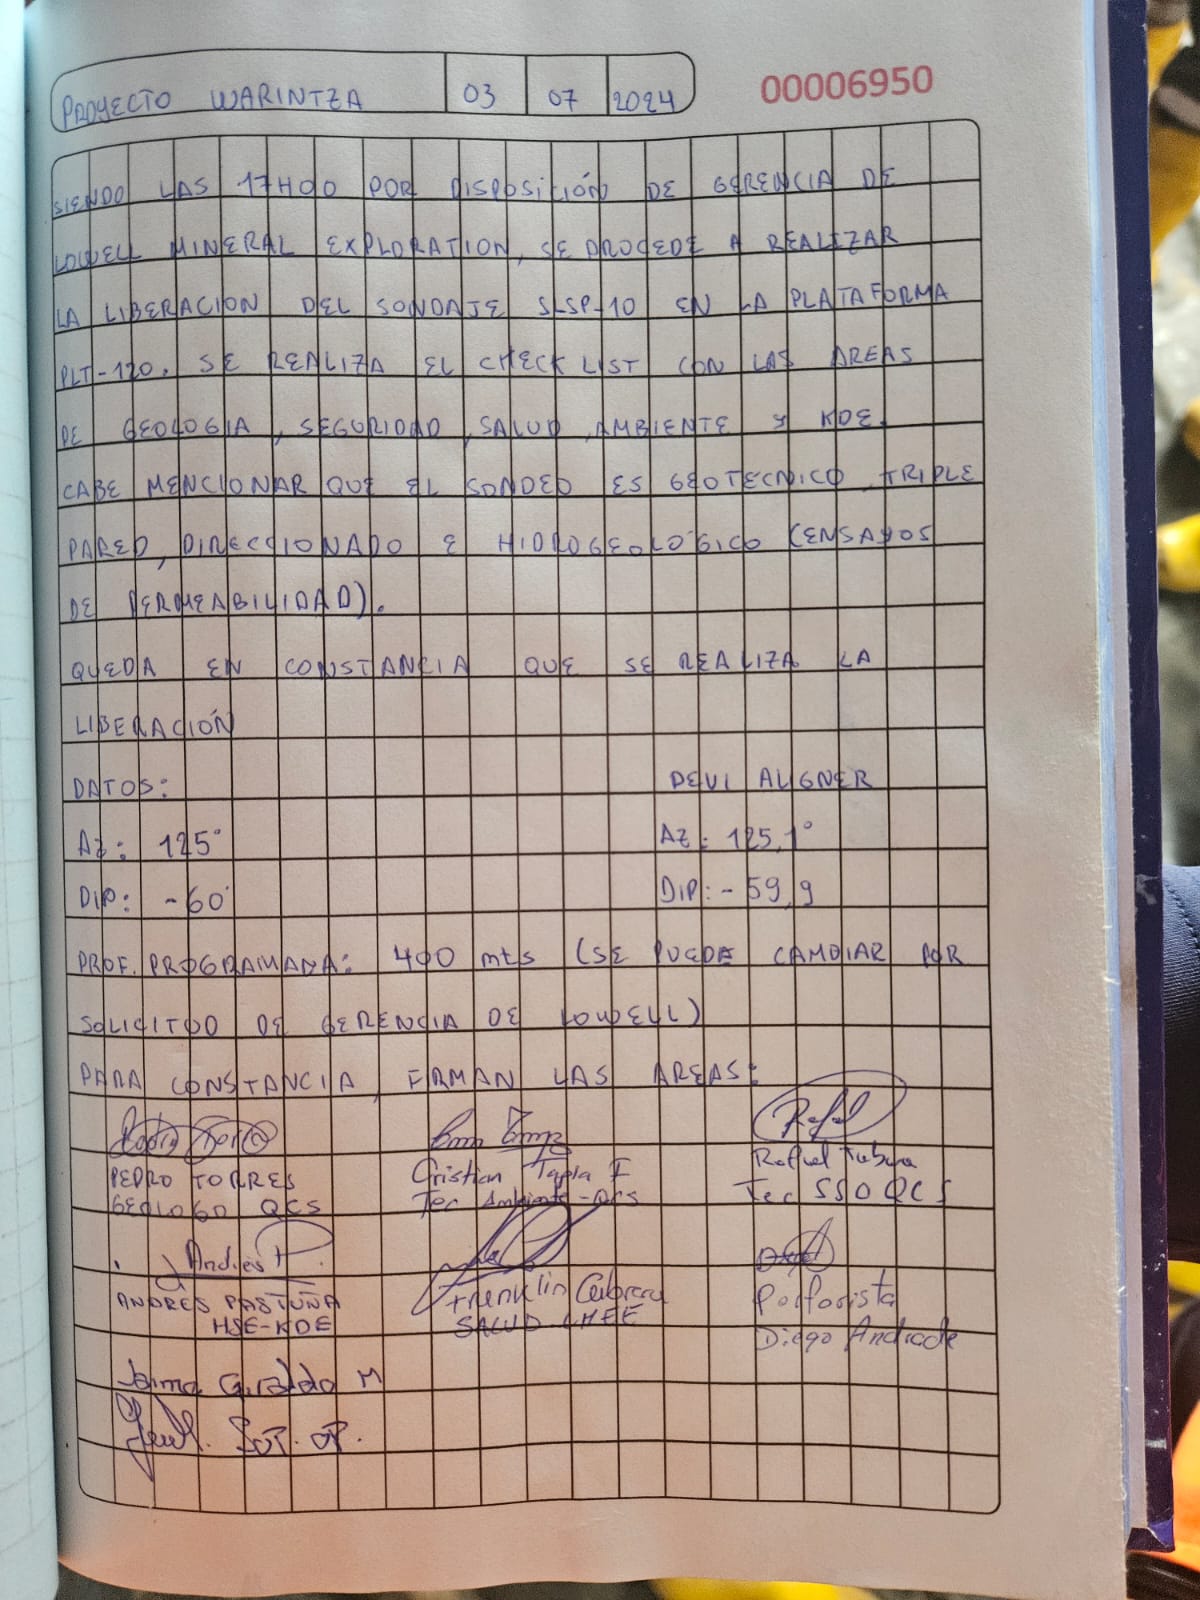 PROYECTO WARINTZA 03 07 2024 00006950
SIENDO LAS 17H00 POR DISPOSICIÓN DE GERENCIA DE
LOWELL MINERAL EXPLORATION, SE PROCEDE A REALIZAR
LA LIBERACION DEL SONDAJE SLSP-10 EN LA PLATAFORMA
PLT-120. SE REALIZA EL CHECK LIST CON LAS AREAS
DE GEOLOGIA, SEGURIDAD, SALUD, AMBIENTE Y KDE.
CABE MENCIONAR QUE EL SONDEO ES GEOTECNICO, TRIPLE
PARED, DIRECCIONADO E HIDROGEOLÓGICO (ENSAYOS
DE PERMEABILIDAD).
QUEDA EN CONSTANCIA QUE SE REALIZA LA
LIBERACIÓN
DATOS: DEVI ALIGNER
AZ: 125° AZ: 125,1°
DIP: -60° DIP: -59,9
PROF. PROGRAMADA: 400 mts (SE PUEDE CAMBIAR POR
SOLICITUD DE GERENCIA DE LOWELL)
PARA CONSTANCIA, FIRMAN LAS AREAS:
PEDRO TORRES Cristian Tapia F Rafael
GEOLOGO QCS Tec Ambiente-QCS Tec SSO QCS
Andrés P.
ANDRÉS PASTUÑA Franklin Cabrera Perforista
HSE-KDE SALUD Diego Andrade
Giraldo M
SUP. OP.